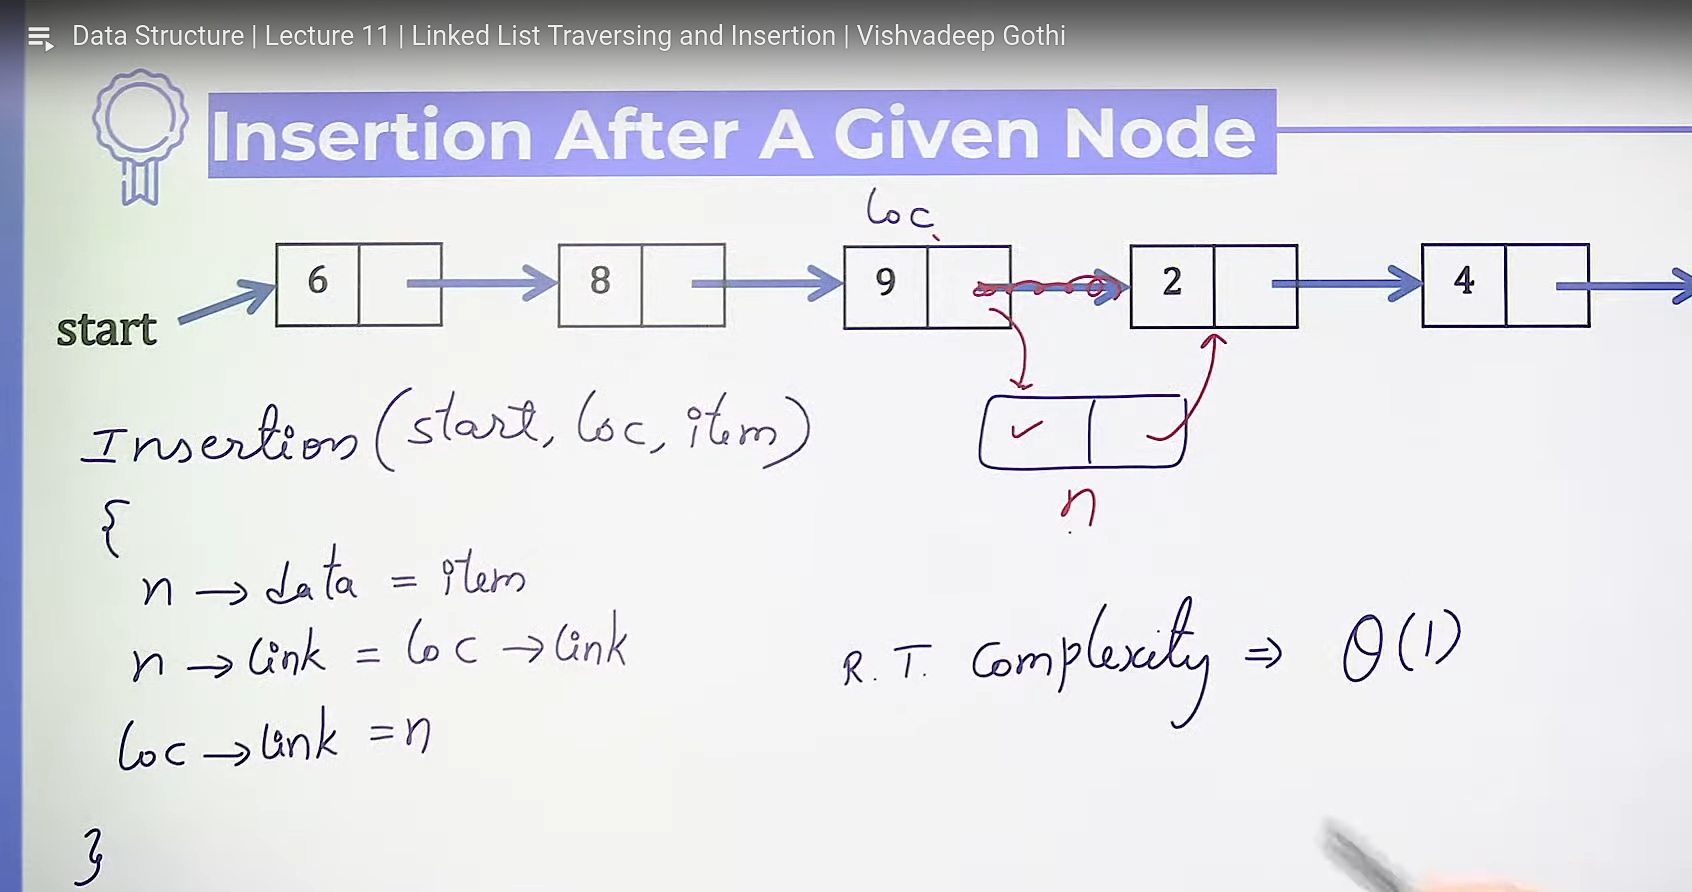 Data Structure | Lecture 11 | Linked List Traversing and Insertion | Vishvadeep Gothi
Insertion After A Given Node
Loc
start 6 8 9 2 4
Insertion (start, Loc, item)
n
{
n → data = item
n → link = Loc → link
R. T. Complexity ⇒ θ(1)
Loc → link = n
}